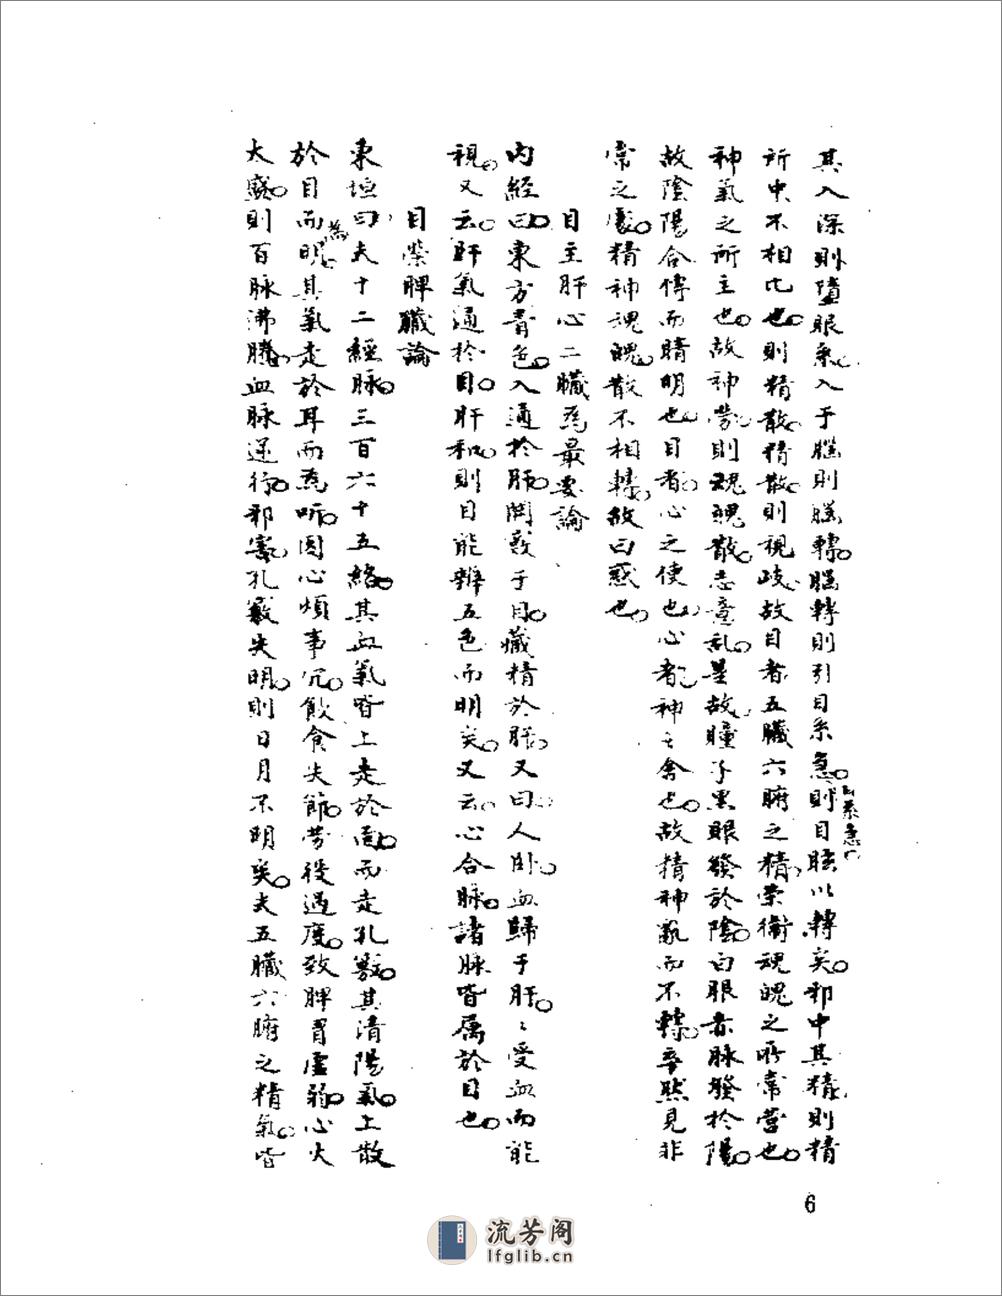 其入深則隨眼系。入于腦則腦轉。腦轉則引目系急。則目眩以轉矣。邪中其精。則精
目系急。
所中不相比也。則精散。精散。則視歧。故目者五臟六腑之精。荣衛魂魄之所常营也。
神氣之所主也。故神勞。則魂魄散。志意乱。是故瞳子黑眼發於陰。白眼赤脉發於陽。
故陰陽合傳而睛明也。目者。心之使也。心者。神之舍也。故精神亂而不轉。卒然見非
常之處。精神魂魄。散不相轉。故曰惑也。
目主肝心二臟為最要論
内經曰。東方青色。入通於肝。開竅于目。藏精於肝。又曰。人卧。血歸于肝。〻受血而能
視。又云。肝氣通於目。肝和。則目能辨五色而明矣。又云。心合脉。諸脉皆属於目也。
目榮脾臟論
東垣曰。夫十二經脉。三百六十五絡。其血氣皆上走於面。而走孔竅。其清陽氣。上散
於目而明。其氣走於耳而為听。因心煩事冗。飲食失節。劳役過度。致脾胃虛弱。心火
為
大盛。則百脉沸騰。血脉逆行。邪害。孔竅失明。則日月不明矣。夫五臟六腑之精氣。皆
6
流芳阁
lfglib.cn